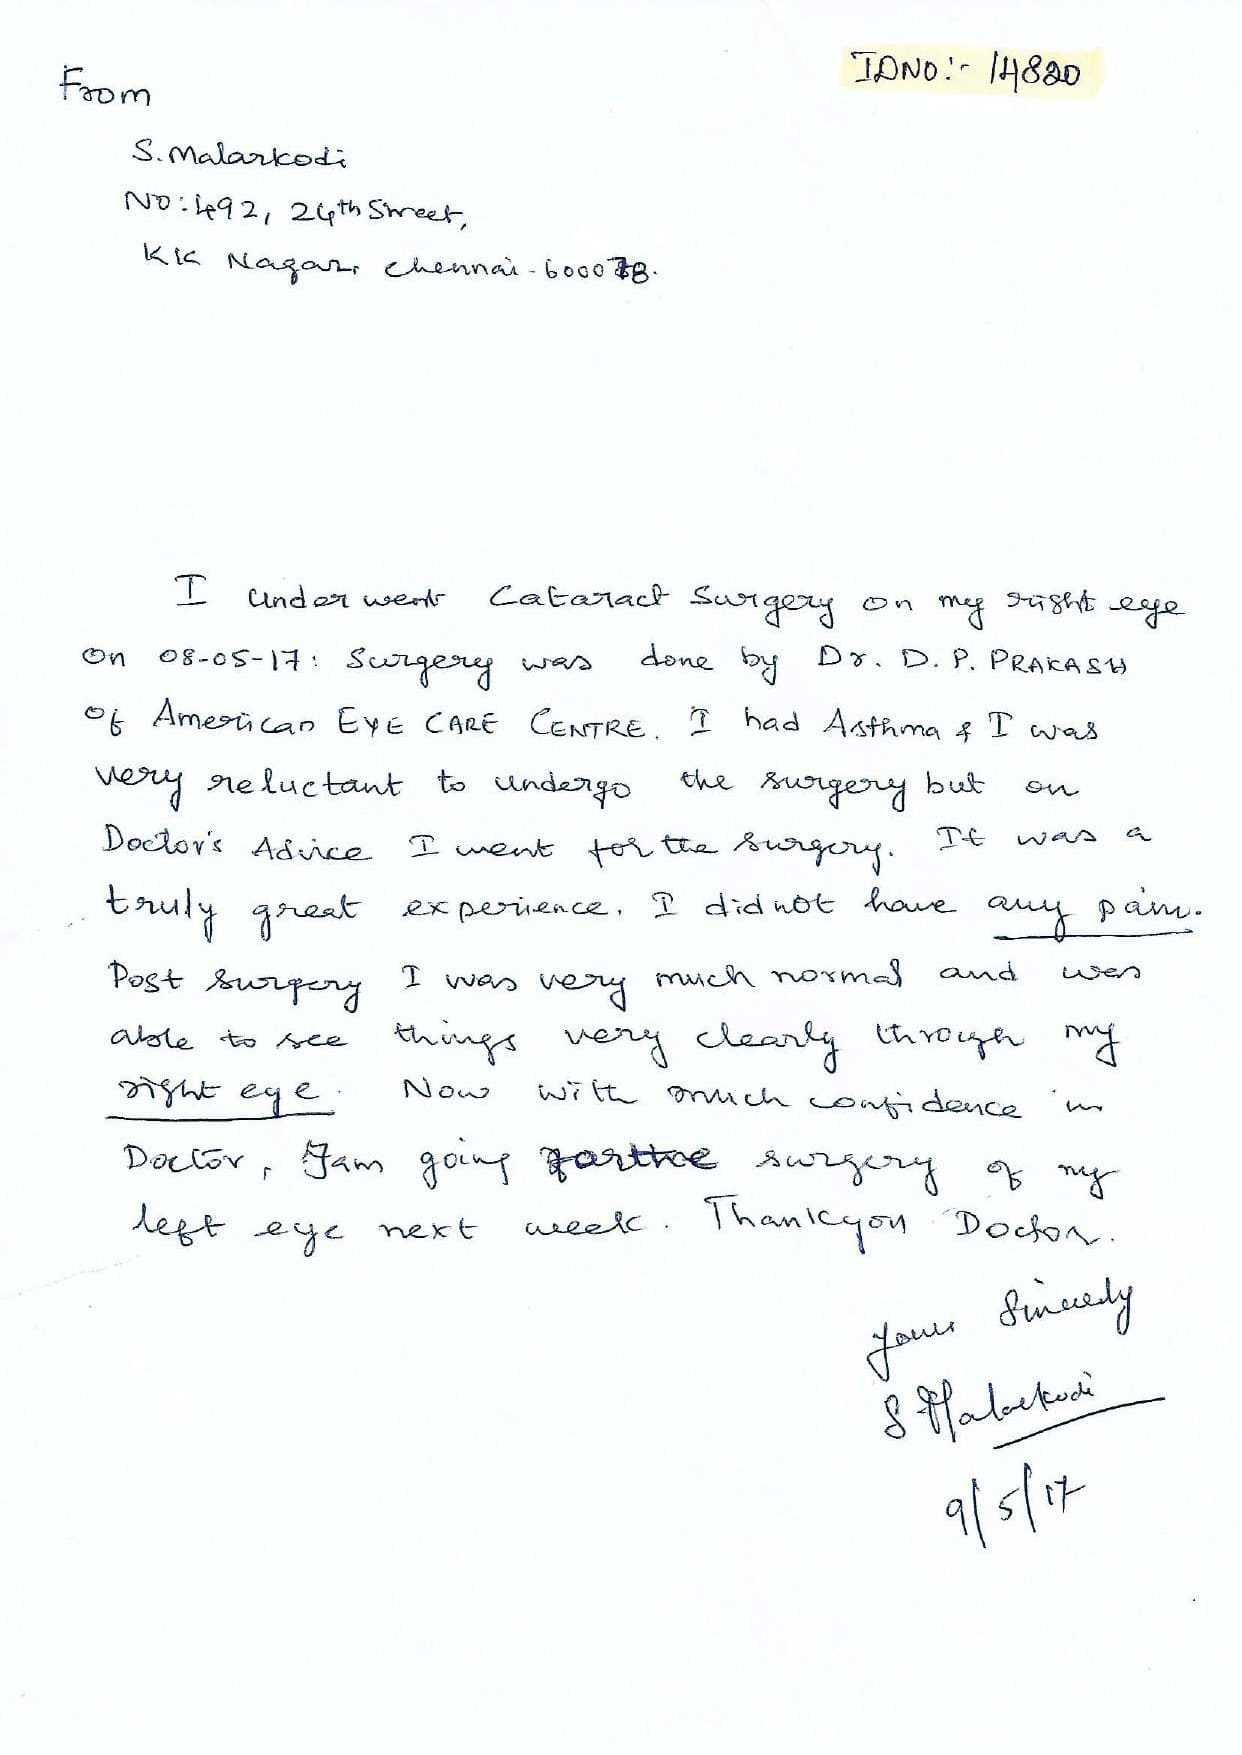 IDNO:- 14820
From
S. Malarkodi
NO: 492, 24th Street,
KK Nagar, Chennai - 600078.
I underwent Cataract Surgery on my right eye
on 08-05-17: Surgery was done by Dr. D. P. PRAKASH
of American EYE CARE CENTRE. I had Asthma & I was
very reluctant to undergo the surgery but on
Doctor's Advice I went for the surgery. It was a
truly great experience. I did not have any pain.
Post surgery I was very much normal and was
able to see things very clearly through my
right eye. Now with much confidence in
Doctor, I am going for the surgery of my
left eye next week. Thankyou Doctor.
Yours Sincerely
S Malarkodi
9/5/17